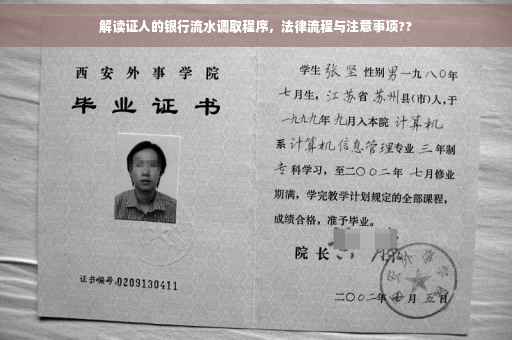 解读证人的银行流水调取程序，法律流程与注意事项??
西安外事学院
毕业证书
证书编号:0209130411
学生 张坚 性别 男 一九八〇年
七月生，江苏省 苏州县(市)人,于
一九九九年 九月入本院 计算机
系 计算机信息管理专业 三 年制
专科学习，至二〇〇二年 七月修业
期满，学完教学计划规定的全部课程，
成绩合格，准予毕业。
院长
二〇〇二年 月 五日